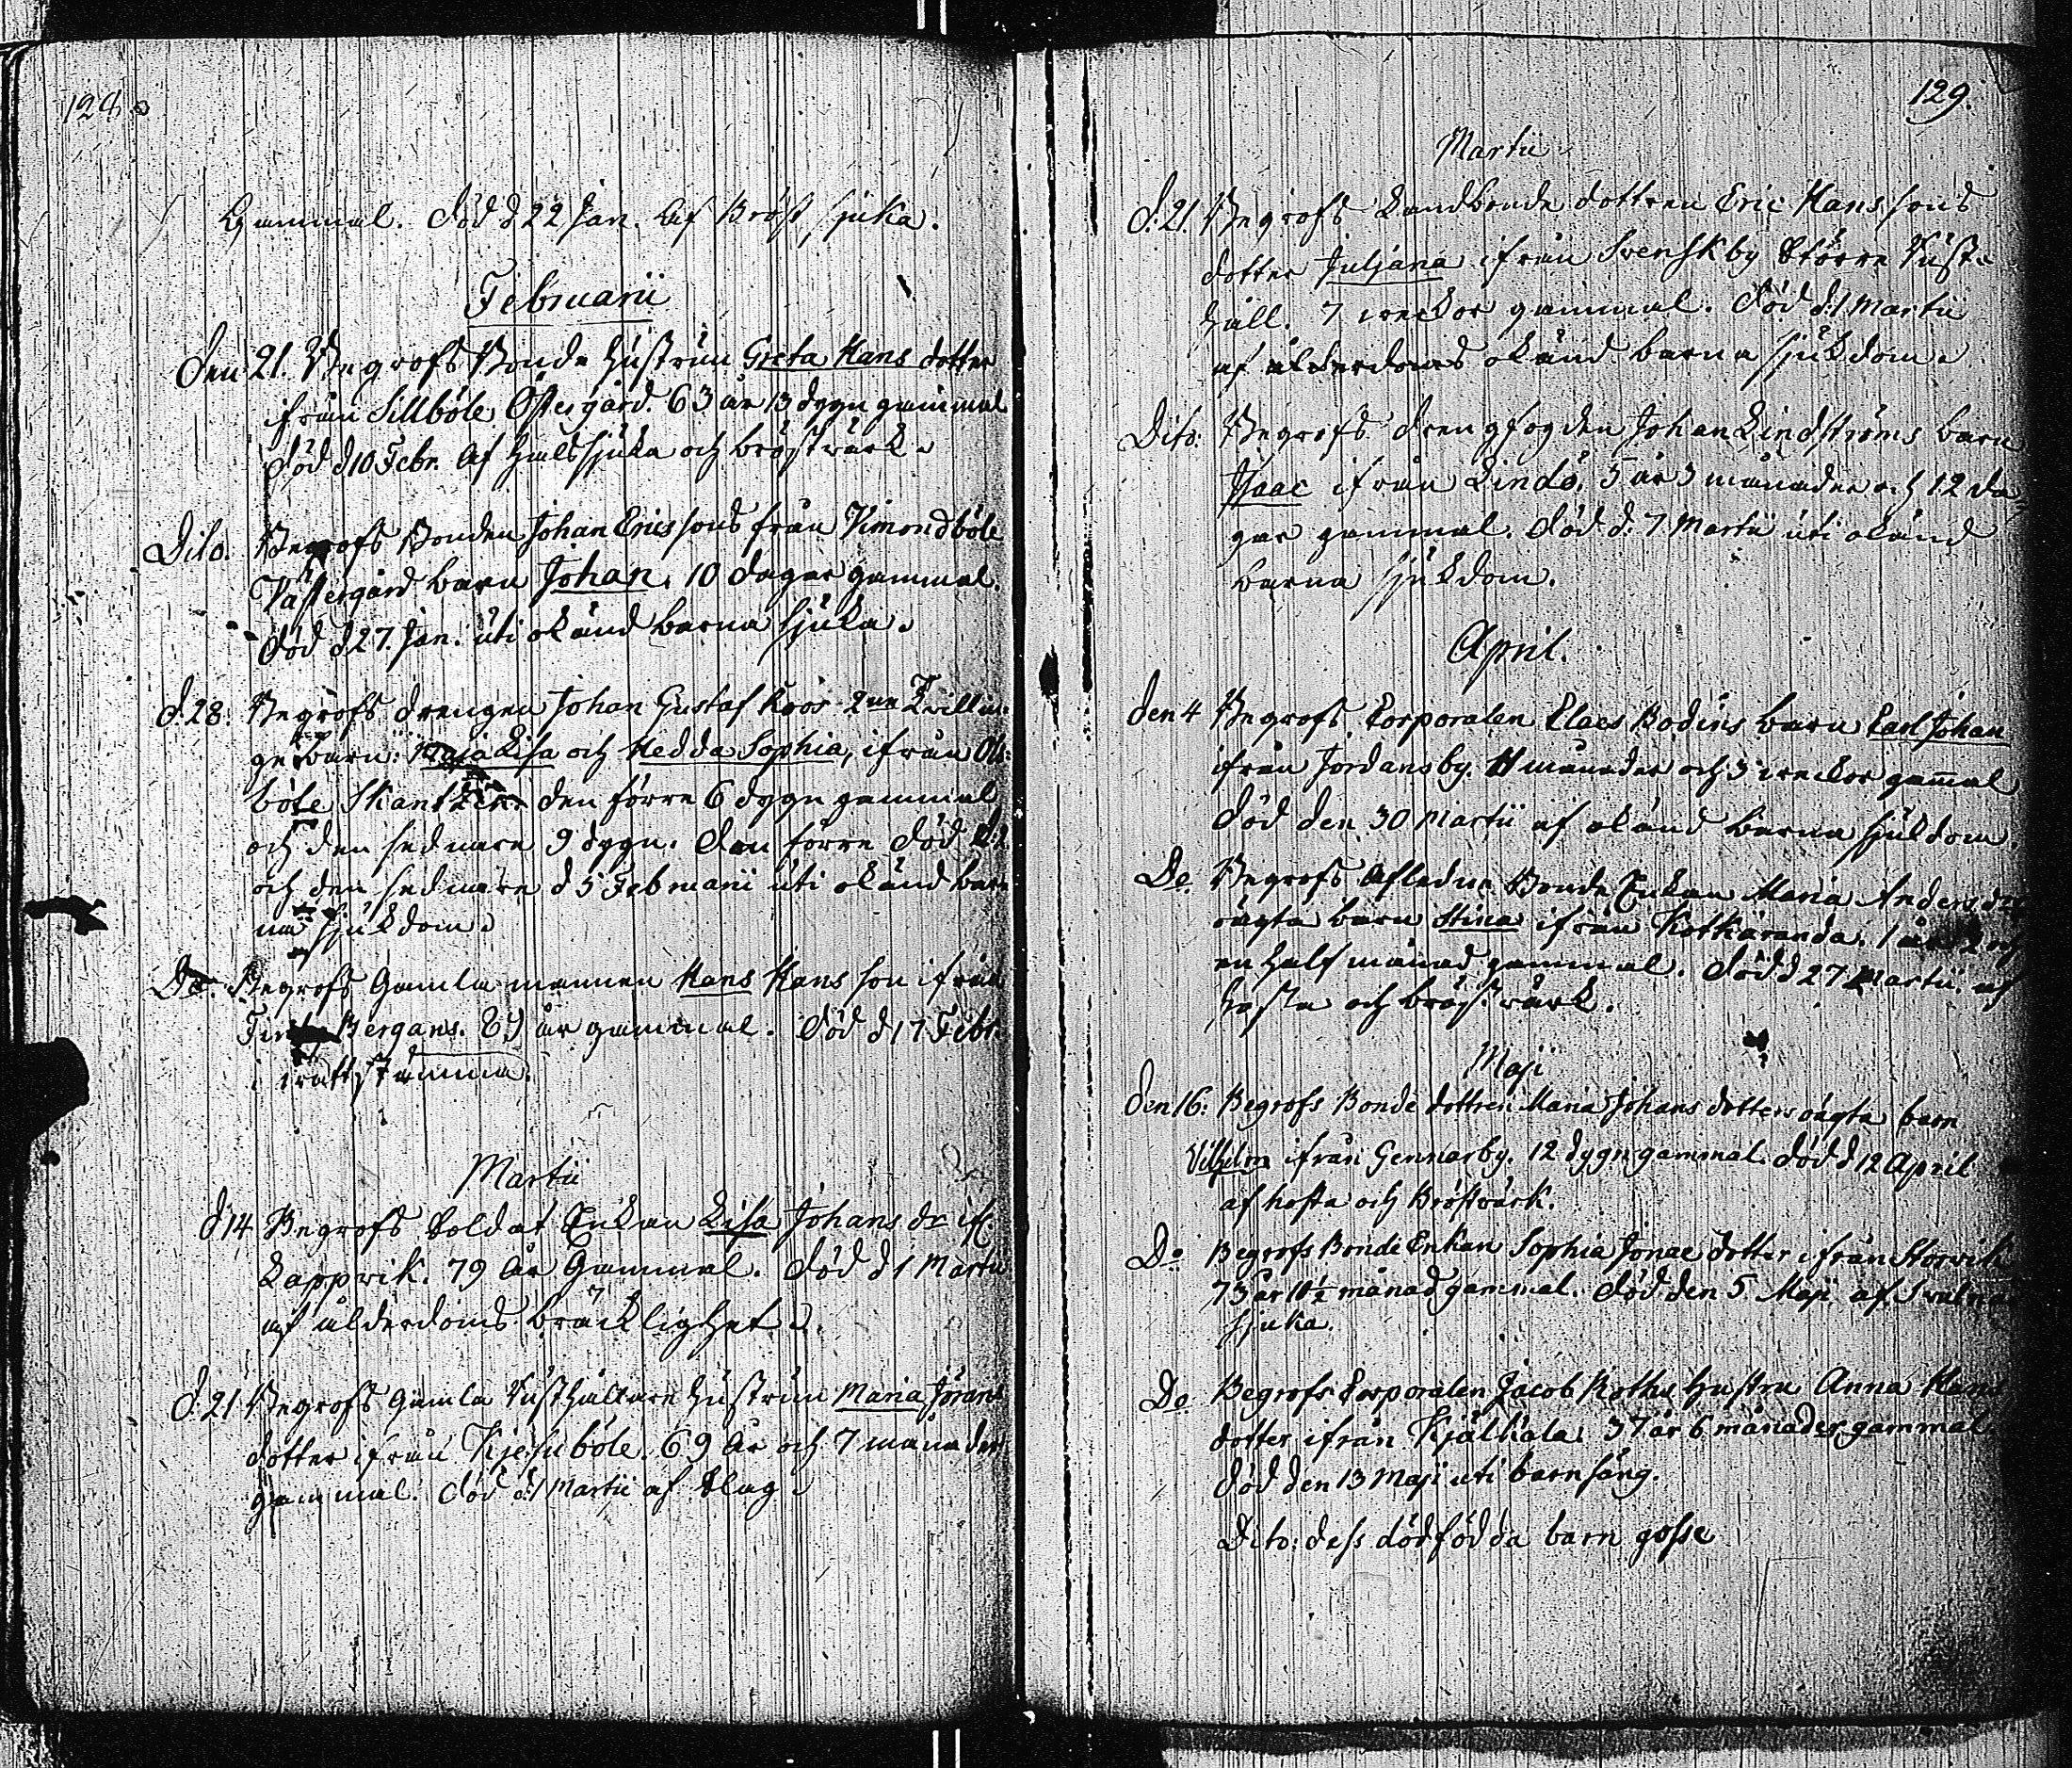 128.
Gammal. Död d 22 Jan. Af Bröst sjuka.
Februarii
Den 21. Begrofs Bonde hustrun Greta Hans dotter
ifrån Sillböle Östergård. 63 år 13 dygn gammal
Död d 10 Febr. Af halssjuka och bröstvärk.
Dito. Begrofs Bonden Johan Ericssons från Vimondböle
Västergård barn Johan. 10 dagar gammal.
Död d 27. Jan. uti okänd barna sjuka.
d. 28. Begrofs drengen Johan Gustaf Roos 2ne Tvillin-
gebarn: Maja Lisa och Hedda Sophia, ifrån Ols-
böle Skantzen. den förre 6 dygn gammal
och den sednare 9 dygn. Den förre död
och den sednare d 5 Februarii uti okänd bar-
na sjukdom.
Do. Begrofs Gamla mannen Hans Hans son ifrån
Bergans. år gammal. Död d 17 Febr.
i
Martii
d 14 Begrofs Soldat Enkan Lisa Johans dr if.
Lappvik. 79 År Gammal. Död d 1 Martii
af ålderdoms bräcklighet.
d. 21 Begrofs Gamla Rusthållare hustrun Maria Jörans
dotter ifrån böle. 69 År och 7 månader
gammal. Död d. 1 Martii af Slag.
129.
Martii
d. 21. Begrofs Landbonde dottren Eric Hans sons
dotter Juljana ifrån Svenskby Större Rust-
håll. 7 veckor gammal. Död d. 1 Martii
af ålderdoms okänd barna sjukdom.
Dito: Begrofs Drengfogden Johan Lindströms barn
Isaac ifrån Lindö. 5 år 3 månader och 12 da-
gar gammal. Död d. 7 Martii uti okänd
barna sjukdom.
April.
Den 4 Begrofs Corporalen Claes Bodins barn Carl Johan
ifrån Jordansby. 11 månader och 3 veckor gamal
Död den 30 Martii af okänd barna sjukdom.
Do. Begrofs Afledne Bonde Enkan Maria Anders dr
oägta barn Stina ifrån Kotkäranda. 1 år 2 och
en half månad gammal. Död d 27 Martii af
hosta och bröstvärk.
Maji
Den 16. Begrofs Bonde dottren Maria Johans dotters oägta barn
Vilhelm ifrån Gennarby. 12 dygn gammal. död d 12 April
af hosta och Bröstvärk.
Do Begrofs Bonde Enkan Sophia Jonae dotter ifrån Storvik
73 år 10½ månad gammal. Död den 5 Maji af
sjuka.
Do. Begrofs Corporalen Jacob Roths Hustru Anna Hans
dotter ifrån Kjälkala. 37 år 6 månader gammal
Död den 13 Maji uti barnsäng.
Dito: dess dödfödda barn gosse